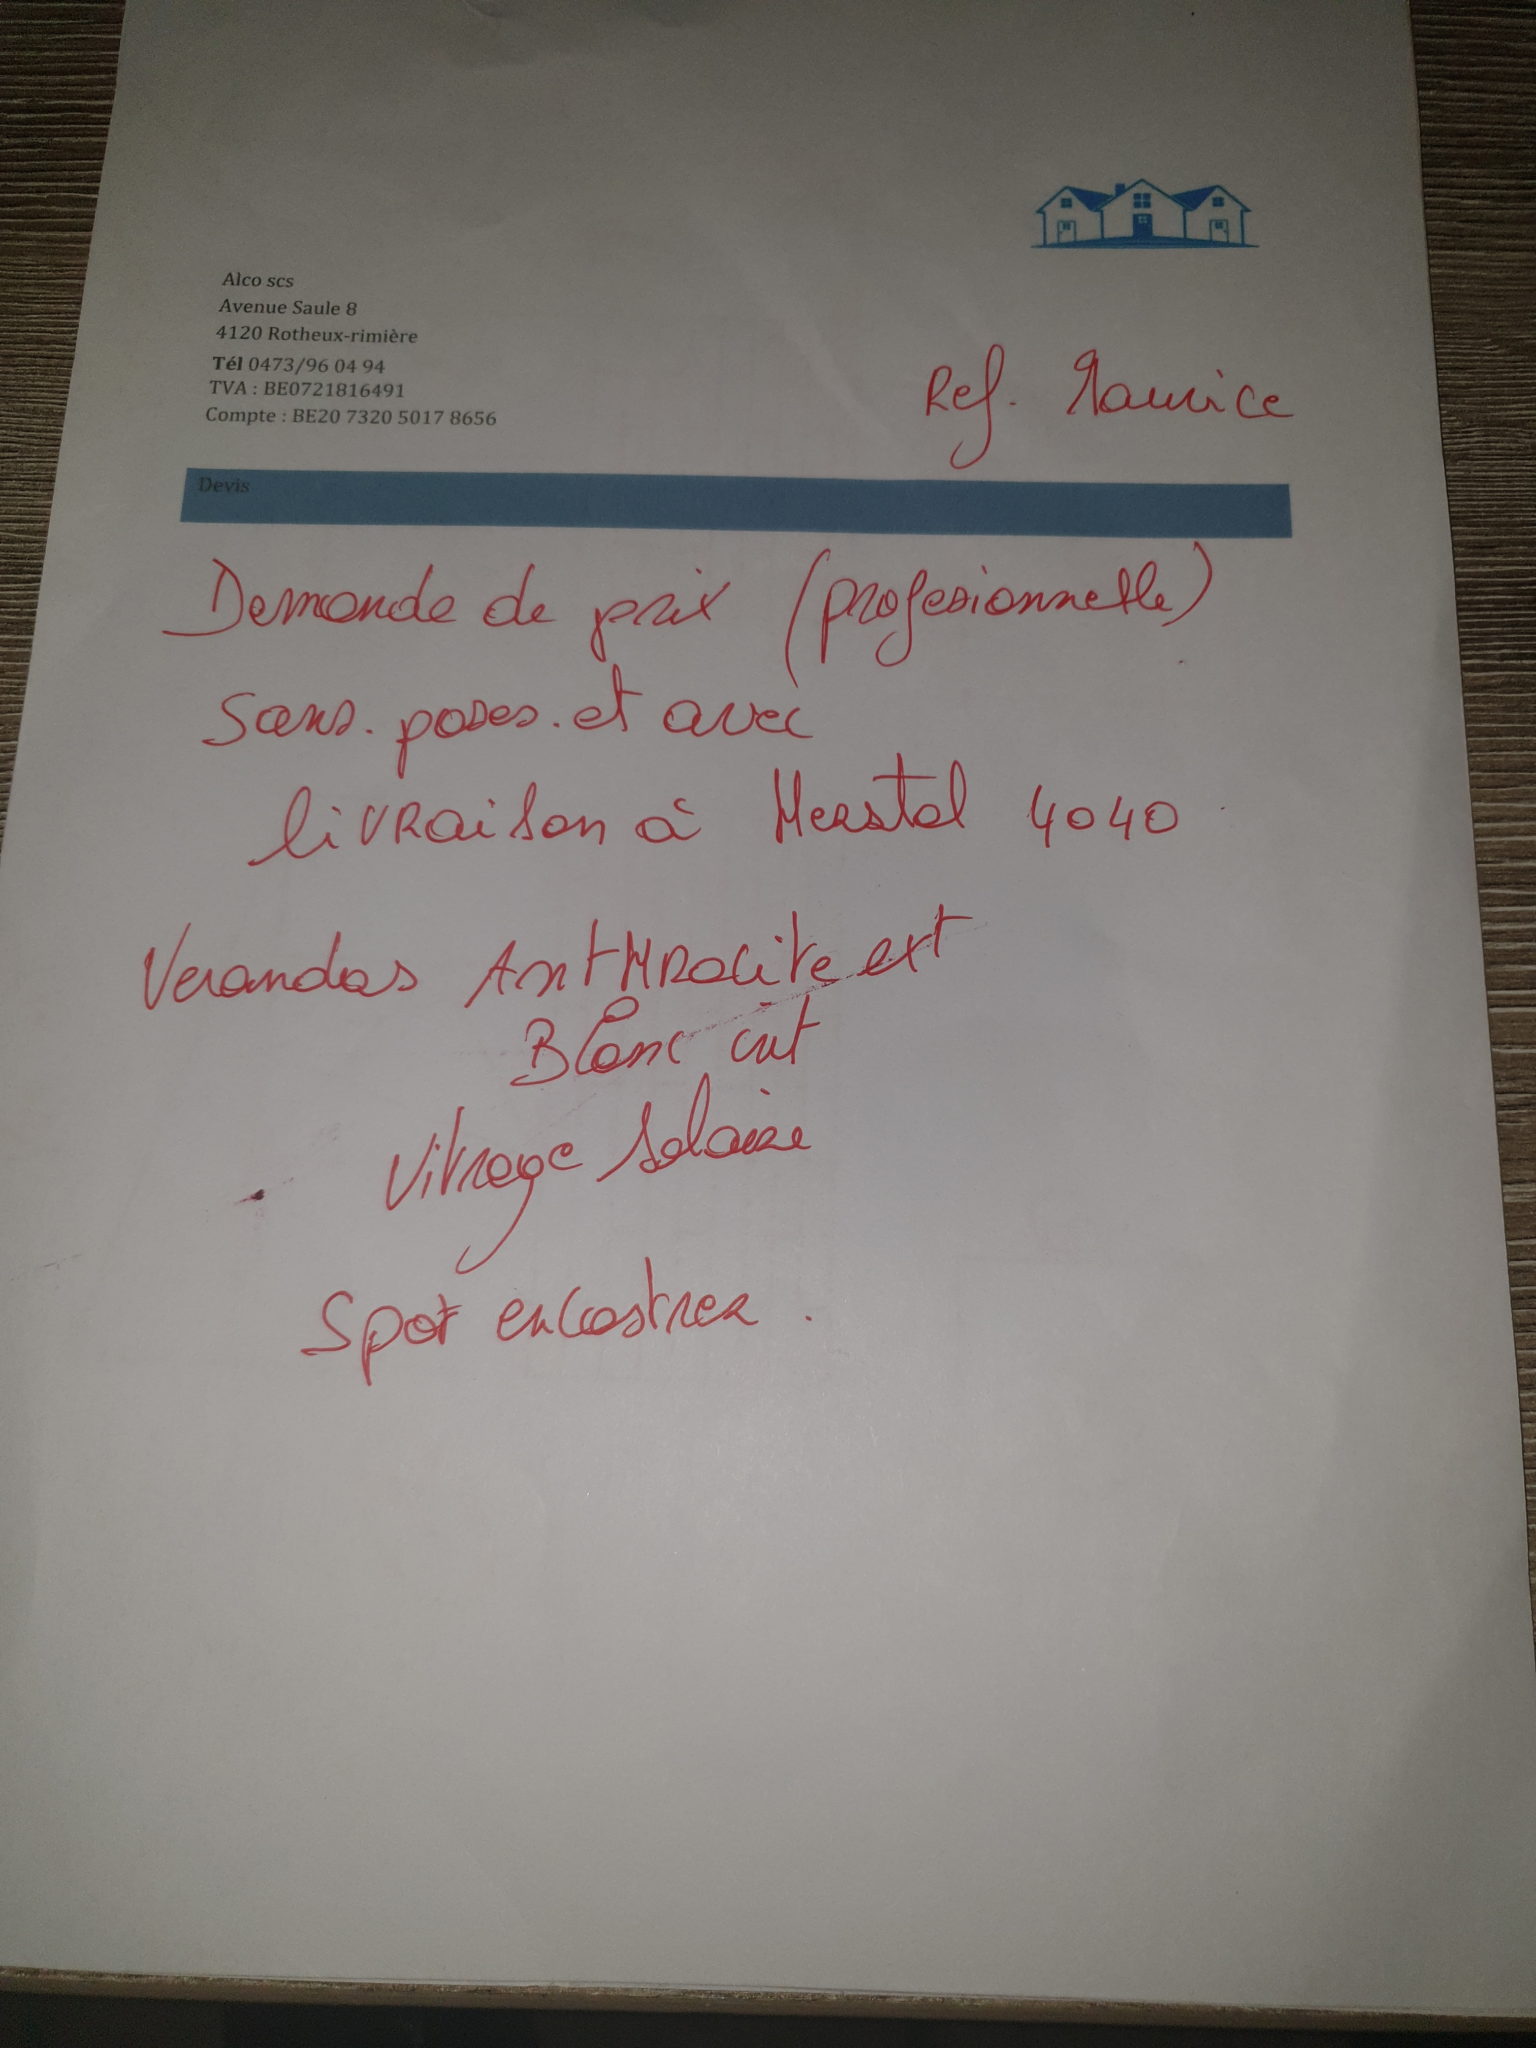 Alco scs
Avenue Saule 8
4120 Rotheux-rimière
Tél 0473/96 04 94
TVA : BE0721816491
Compte : BE20 7320 5017 8656
Ref. Maurice
Devis
Demande de prix (profesionnelle)
Sans. poses. et avec
livraison à Herstal 4040
Verandas AntHRacite ext
Blanc int
Vitrage solaire
Spot encastrer.